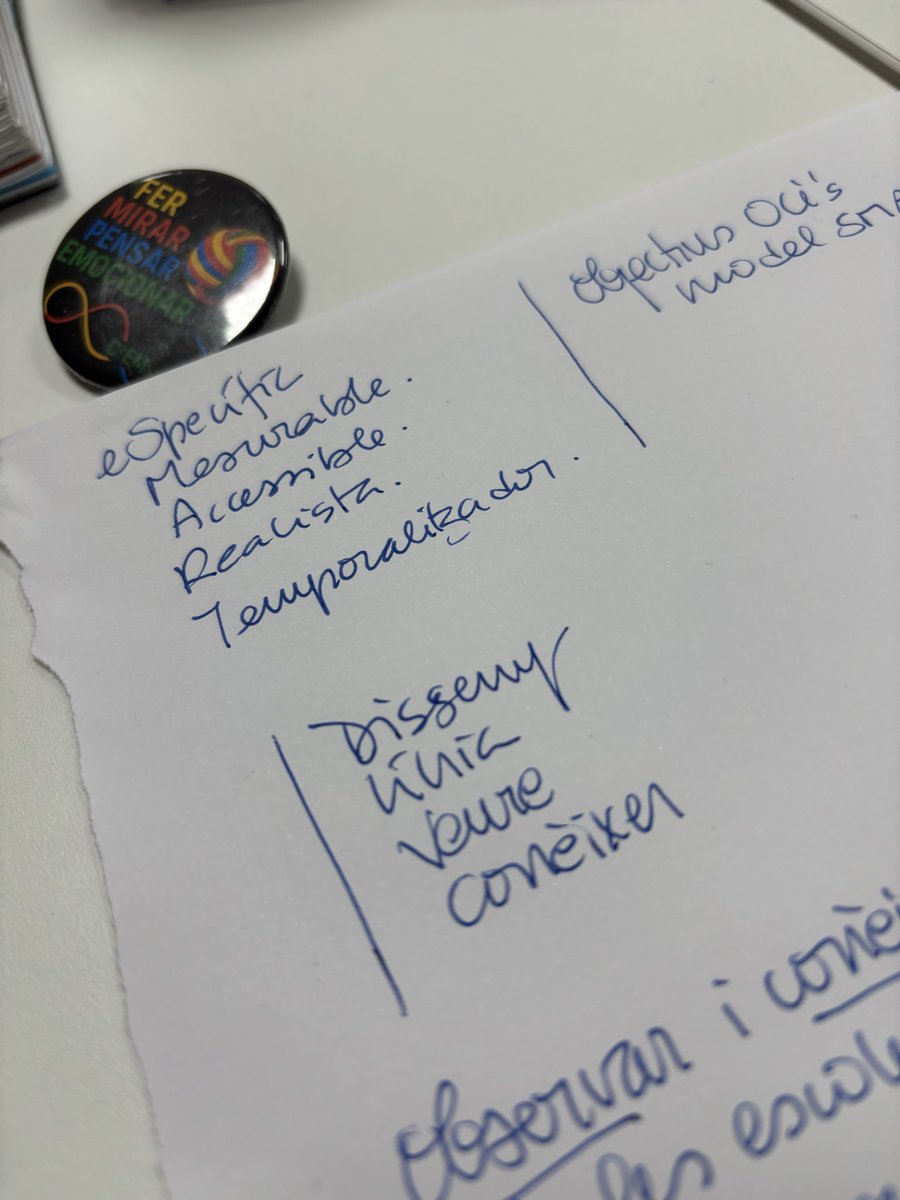 FER
MIRAR
PENSAR
EMOCIONAR
Objectius OCI's
model SMA
eSpecífic
Mesurable.
Accessible.
Realista.
Temporalitzador.
Disseny
línia
Veure
conèixer
Observar i conèi
les escol